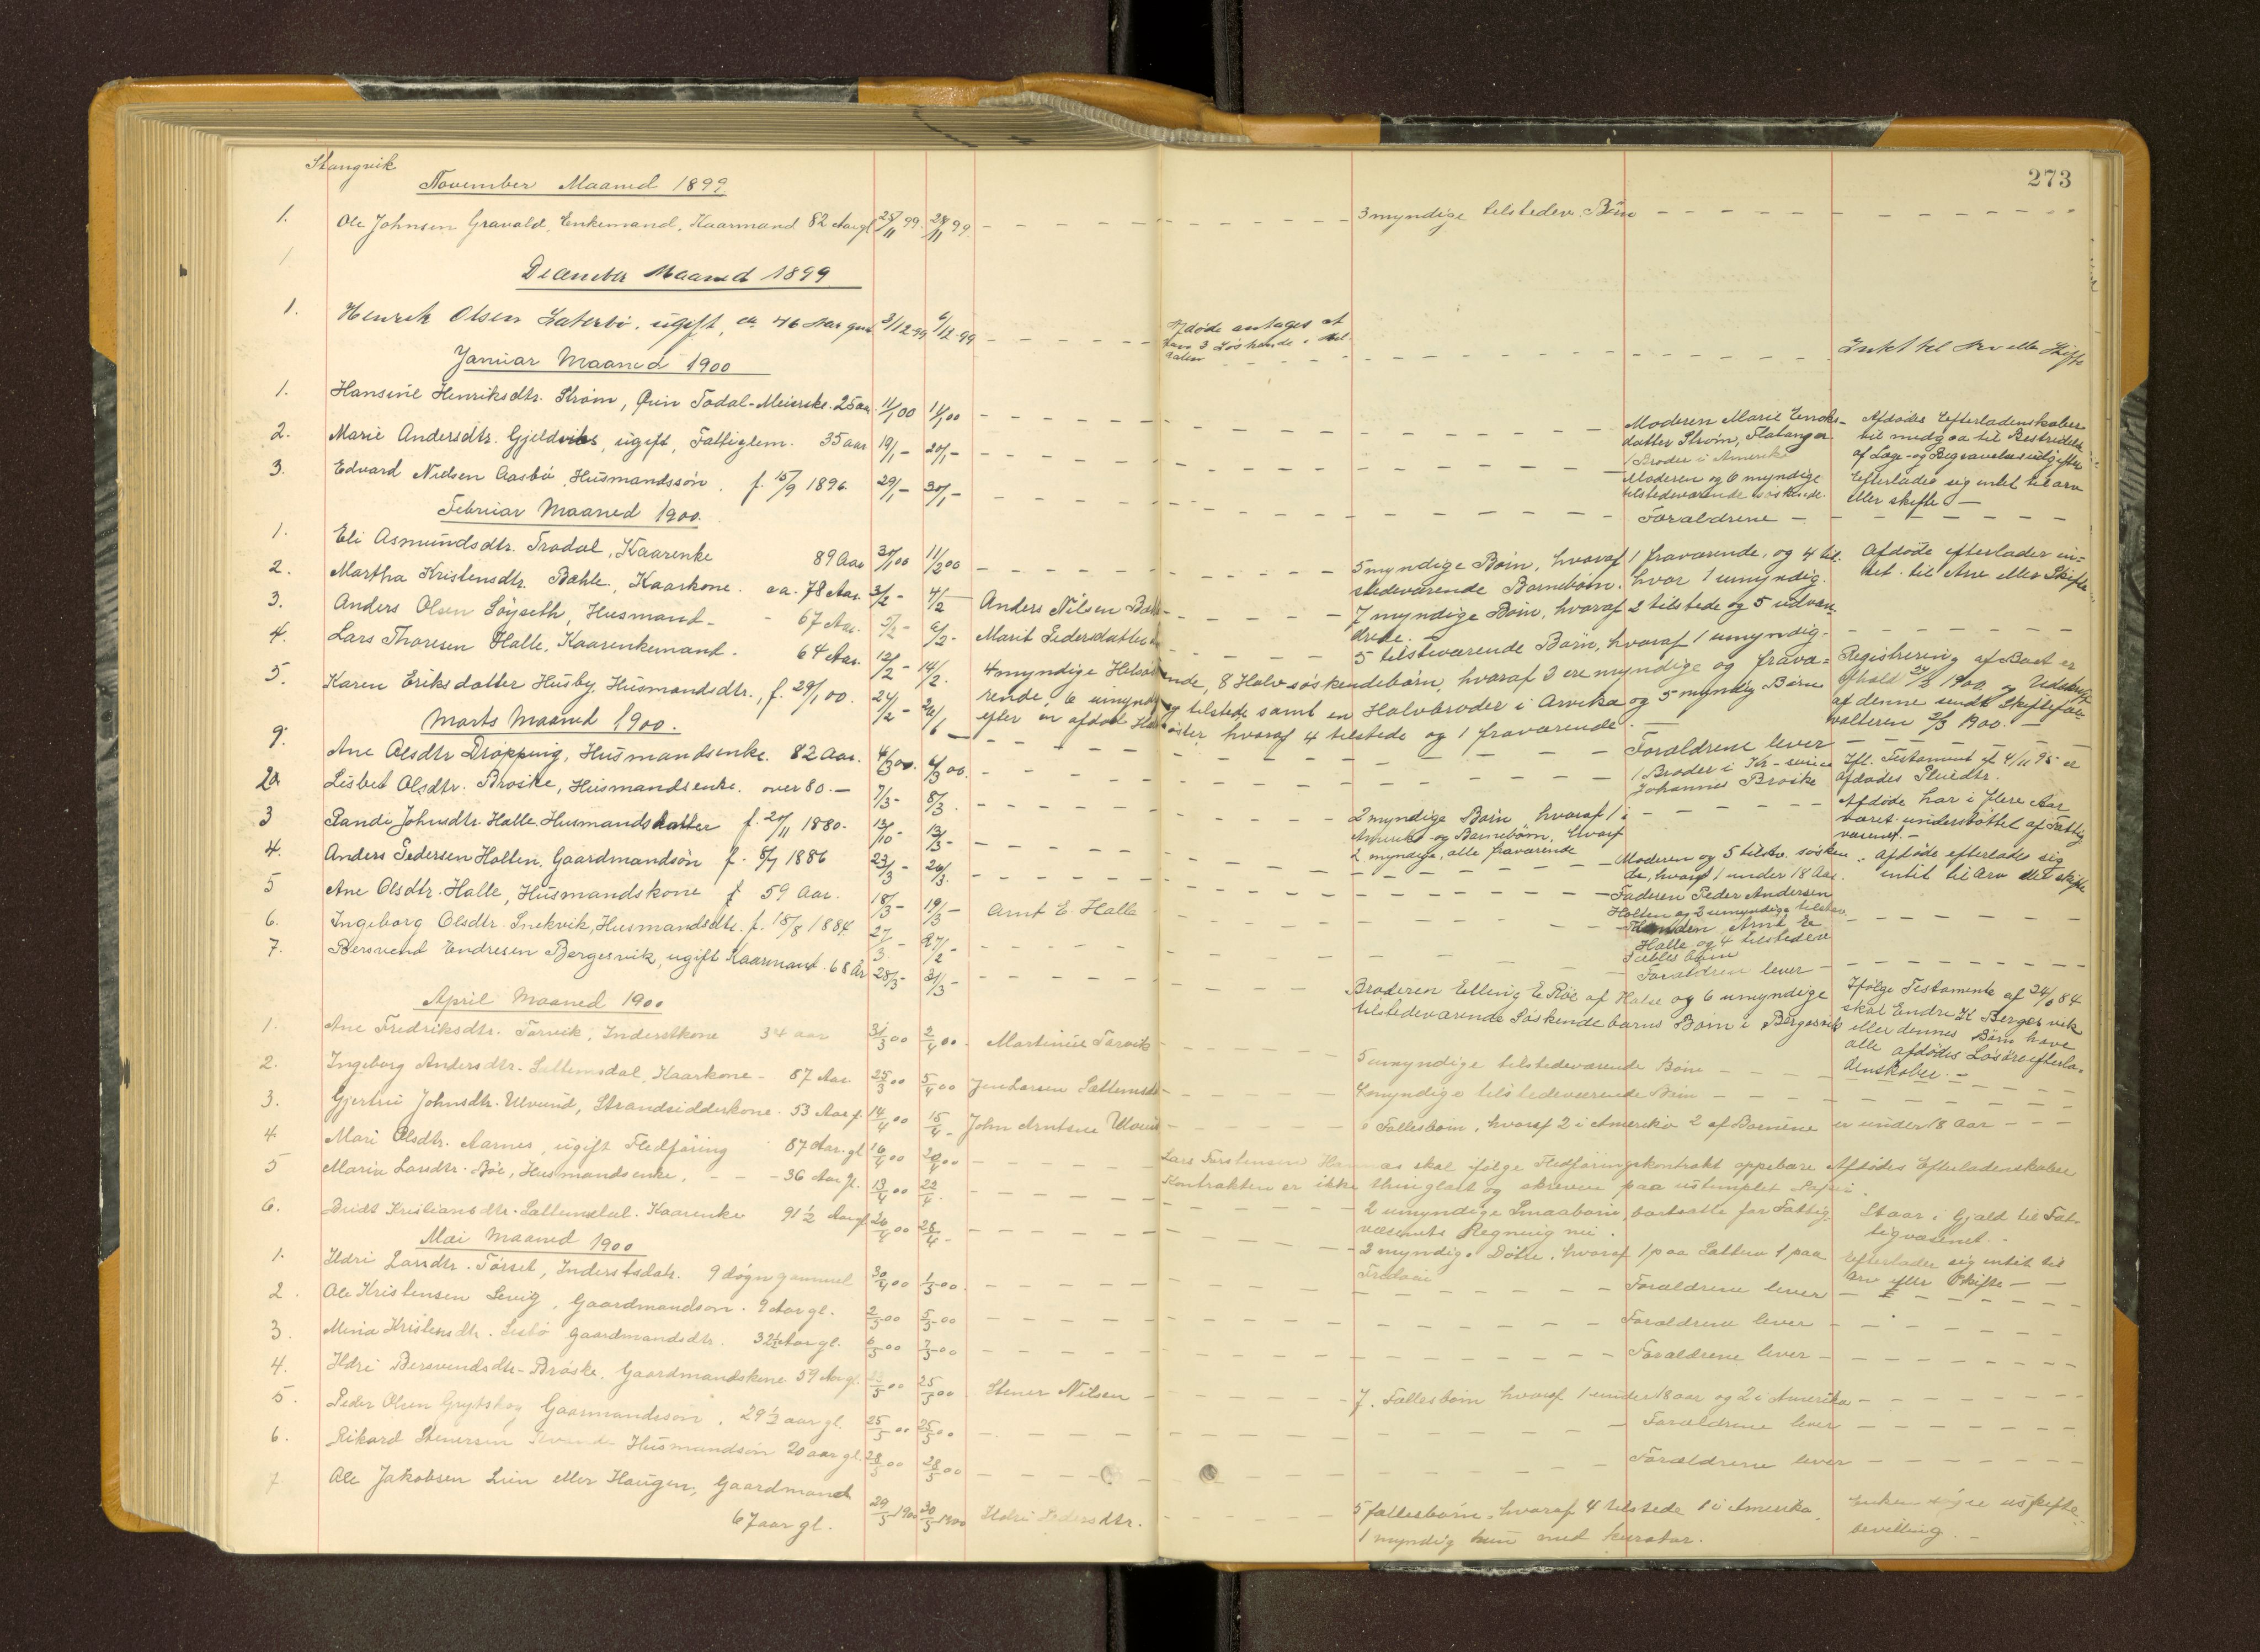 Stangvik
273
November Maaned 1899
1. Ole Johnsen Gravald, Enkemand, Kaarmand 82 Aar gl 25/11 99. 28/11 99. 3 myndige tilstedev. Børn
December Maaned 1899
1. Henrik Olsen Sæterbø, ugift, ca 46 Aar gml 3/12-99 6/12-99
Afdøde antages at
have 3 Søskende i
Intet til Arv eller Skifte
Januar Maaned 1900
1. Hansine Henriksdtr. Strøm, Øvin Todal-Meierske. 25 aar. 11/1 00 11/1 00
Moderen Marie Enoks-
datter Strøm, Flatanger
1 Broder i Amerika
Afdødes Efterladenskaber
til medgaa til Bestridelse
af Læge- og Begravelsesudgifter
2. Marie Andersdtr. Gjeldvik, ugift, Fattiglem. 35 aar 19/1 - 20/1 -
Moderen og 6 myndige
tilstedeværende søskende.
Efterlades sig intet til arv
eller skifte -
3. Edvard Nielsen Aasbø, Husmandssøn. f. 15/9 1896. 29/1 - 30/1 - Forældrene -
Februar Maaned 1900.
1. Eli Asmundsdtr. Trodal, Kaarenke 89 Aar 30/1 00 11/2 00
5 myndige Børn, hvoraf 1 fraværende, og 4 til-
stedeværende Barnebørn. hvor 1 umyndig.
Afdøde efterlader in-
tet til Arv eller Skifte
2. Martha Kristensdtr. Bæhle, Kaarkone. ca. 78 Aar. 3/2 - 4/2 - Anders Nilsen
7 myndige Børn, hvoraf 2 tilstede og 5 udvan
drede. -
3. Anders Olsen Søyseth, Husmand - - 67 Aar. 5/2 - 6/2 - Marit Pedersdatter
5 tilsteværende Børn, hvoraf 1 umyndig.
4. Lars Thoresen Halle, Kaarenkemand. 64 Aar. 12/2 - 14/2.
4 myndige Helsøskende, 8 Halvsøskendebørn, hvoraf 3 ere myndige og fravæ-
rende, 6 umyndig tilstede samt en Halvbroder i Arvika og 5 myndig Børn
efter en afdød Halvsøster, hvoraf 4 tilstede og 1 fraværende.
Registrering af Boet er
afhold 1900. og Udskrift
af denne sendt Skiftefor-
valteren 2/3 1900. -
5. Karen Eriksdatter Husby, Husmandsdtr., f. 29/1 00. 24/2 - 26/6 - Forældrene lever
Marts Maaned 1900.
9. Ane Olsdtr Drøpping, Husmandsenke. 82 Aar. 4/3 00. 6/3 00.
1 Broder i Kr-
Johannes Brøske
Ifl. Testament af 4/11 95 er
afdødes Pleiedtr.
2a Lisbet Olsdtr. Brøske, Husmandsenke. over 80. - 7/3 - 8/3.
2 myndige Børn, hvoraf 1 i
Amerika og Barnebørn, hvoraf
2 myndige, alle fraværende
Afdøde har i flere Aar
været understøttet af Fattig
væsenet. -
3 Randi Johnsdtr. Halle. Husmandsdatter f. 20/11 1880. 13/10 - 13/3 -
Moderen og 5 tilstv. søsken
de, hvoraf 1 under 18 Aar.
Afdøde efterlades sig
intet til Arv eller skifte
4. Anders Pedersen Holten, Gaardmandsøn f. 8/7 1886 23/3 - 26/3.
Faderen Peder Andersen
Holten og 2 umyndige tilstev.
5 Ane Olsdtr. Halle, Husmandskone f 59 Aar. 18/3 - 19/3 - Arnt E. Halle
Arnt E
Halle og 4 tilstedev
Fælles børn
6. Ingeborg Olsdtr. Snekvik, Husmandsdtr. f. 18/8 1884. 27/3 - 27/2 - Forældrene lever -
7. Bersvend Endresen Bergesvik, ugift Kaarmand. 68 År 28/3 - 31/3 -
Broderen Elling E. Røe af Halse og 6 umyndige
tilstedeværende Søskendebarns Børn i Bergesvik
Ifølge Testamente af 24/6 84
skal Endre K Bergesvik
eller dennes Børn have
alle afdødes Løsøreefterla-
denskaber. -
April Maaned 1900
1. Ane Fredriksdtr. Torvik, Inderstkone 34 aar 31/3 00 2/4 00. Martinus Torvik
5 umyndige tilstedeværende Børn
2. Ingeborg Andersdtr. Sættemsdal, Kaarkone - 87 Aar. 25/3 00 5/4 00 Jon Larsen Sættemsd
myndige tilstedeværende Børn
3. Gjertru Johnsdtr. Ulvund, Strandsidderkone. 53 Aar f. 14/4 00 15/4 - John Arntsen Ulvund
Fællesbørn, hvoraf 2 i Amerika 2 af Børnene er under 18 Aar - - -
4. Mari Olsdtr. Aarnes, ugift Fledføring 87 Aar. gl 16/4 00 20/4 00
Lars Torstensen skal ifølge Fledføringskontrakt oppebære Afdødes Efterladenskaber
Kontrakten er ikke thinglæst og skreven paa ustemplet Papir.
5 Maria Larsdtr. Bøe, Husmandsenke. - - - 36 Aar gl. 13/4 00 22/4.
2 umyndige Smaabørn, bortsatte for Fattig-
væsenets Regning nu.
Staar i Gjæld til Fat-
tigvæsenet. -
6. Bridt Kristiansdtr. Sættemsdal. Kaarenke 91 1/2 Aar gl 26/4 00 28/4 -
3 myndige Døtre, hvoraf 1 paa Sættem 1 paa
Efterlader sig intet til
Arv eller Skifte - -
Mai Maaned 1900
1. Ildri Larsdtr. Tørset, Inderstsdatr. 9 døgn gammel 30/4 00 1/5 00. Forældrene lever
2. Ole Kristensen Settvig, Gaardmandsøn. 9 Aar gl. 2/5 00 5/5 00 Forældrene lever
3. Mina Kristensdtr. Sæsbø Gaardmandsdtr. 32 1/2 Aar gl. 6/5 00 7/5 00 Forældrene lever -
4. Ildri Bersvendsdtr. Brøske. Gaardmandskone 59 Aar gl. 23/5 00 25/5 00 Stener Nilsen
7. Fællesbørn hvoraf 1 under 18 aar og 2 i Amerika
5. Peder Olsen Grytskog Gaarmandssøn. 29 1/2 aar gl. 25/5 00 25/5 00 Forældrene lever
6. Rikard Stenersen Husmandsøn 20 aar gl. 28/5 00 28/5 00 Forældrene lever
7 Ole Jakobsen Lien eller Haugen, Gaardmand
67 aar gl. 29/5 1900 30/5 1900 Ildri Pedersdtr.
5 fællesbørn, hvoraf 4 tilstede 1 i Amerika,
1 myndig kun med kurator.
Enken uskifte
bevilling. -